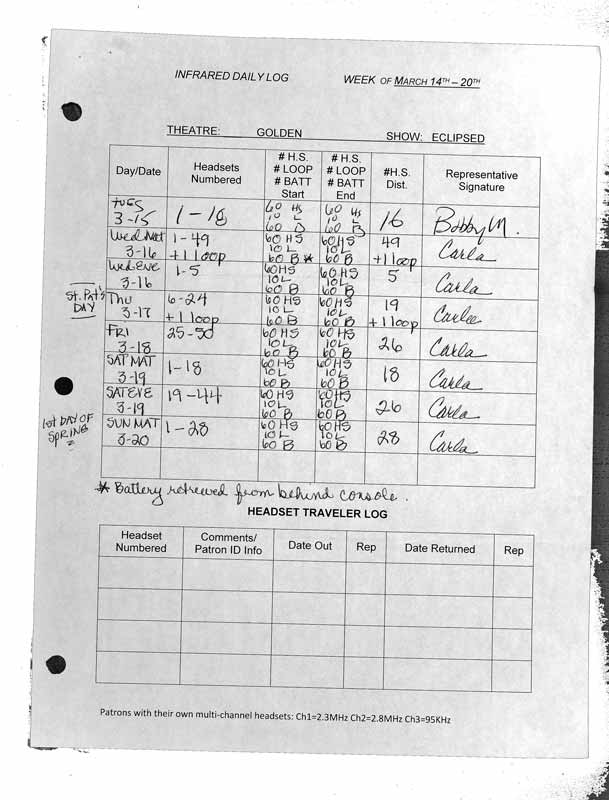 INFRARED DAILY LOG WEEK OF MARCH 14TH – 20TH
THEATRE: GOLDEN SHOW: ECLIPSED
Day/Date Headsets Numbered # H.S. # LOOP # BATT Start # H.S. # LOOP # BATT End #H.S. Dist. Representative Signature
TUES 3-15 1-18 60 HS 10 L 60 B 60 HS 10 L 60 B 16 Bobby M.
Wed Mat 3-16 1-49 +1 loop 60 HS 10 L 60 B * 60 HS 10 L 60 B 49 +1 loop Carla
Wed Eve 3-16 1-5 60 HS 10 L 60 B 60 HS 10 L 60 B 5 Carla
St. Pat's DAY
Thu 3-17 6-24 +1 loop 60 HS 10 L 60 B 60 HS 10 L 60 B 19 +1 loop Carla
FRI 3-18 25-50 60 HS 10 L 60 B 60 HS 10 L 60 B 26 Carla
SAT MAT 3-19 1-18 60 HS 10 L 60 B 60 HS 10 L 60 B 18 Carla
SAT EVE 3-19 19-44 60 HS 10 L 60 B 60 HS 10 L 60 B 26 Carla
1st DAY OF SPRING
SUN MAT 3-20 1-28 60 HS 10 L 60 B 60 HS 10 L 60 B 28 Carla
* Battery retrieved from behind console.
HEADSET TRAVELER LOG
Headset Numbered Comments/ Patron ID Info Date Out Rep Date Returned Rep
Patrons with their own multi-channel headsets: Ch1=2.3MHz Ch2=2.8MHz Ch3=95KHz